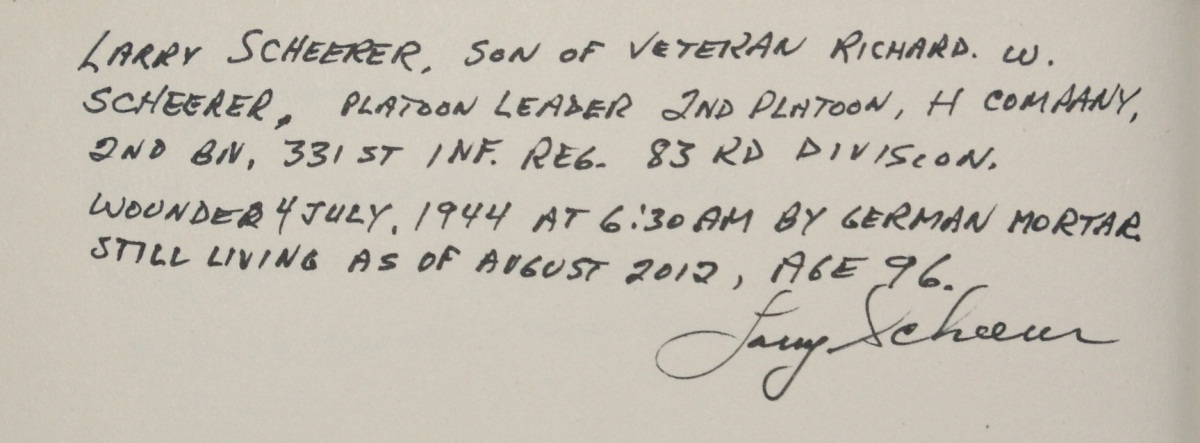 LARRY SCHEERER, SON OF VETERAN RICHARD. W.
SCHEERER, PLATOON LEADER 2ND PLATOON, H COMPANY,
2ND BN, 331 ST INF. REG. 83 RD DIVISION.
WOUNDED 4 JULY, 1944 AT 6:30 AM BY GERMAN MORTAR
STILL LIVING AS OF AUGUST 2012, AGE 96.
Larry Scheerer